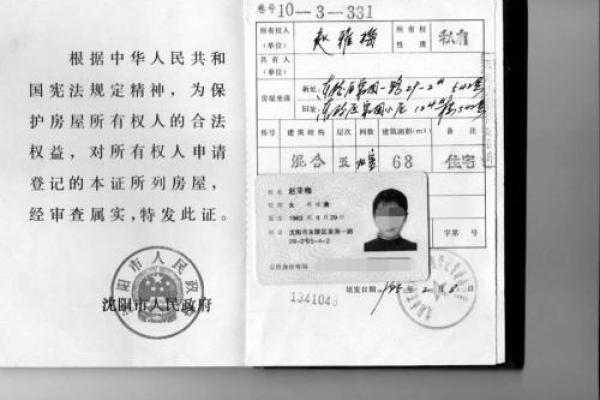 根据中华人民共和
国宪法规定精神，为保
护房屋所有权人的合法
权益，对所有权人申请
登记的本证所列房屋，
经审查属实，特发此证。
沈阳市人民政府
卷号 10-3-331
所有权人
(单位)
赵雅梅
所有权
性质
私有
共有人
(单位)
房屋坐落
新址:
542号
旧址:
栋号 建筑结构 层次 间数 建筑面积(m²) 备注
混合 五 68 住宅
姓名
性别 女 民族
出生 1963 年 9 月 29 日
住址 沈阳市东陵区泉园一路
29-2号5-4-2
公民身份号码
字第 号
1341048
填发日期